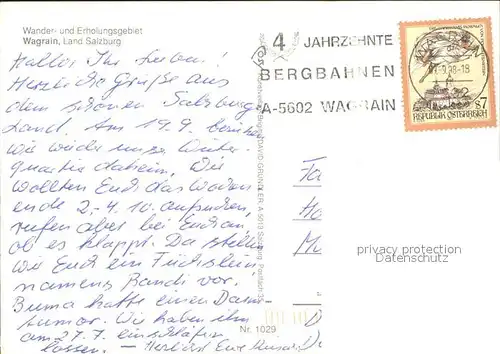 Wander- und Erholungsgebiet
Wagrain, Land Salzburg
Hallo Ihr Lieben!
Herzliche Grüße aus
dem schönen Salzburg
Land. Am 19.9. beziehen
wir wieder unser Winter
quartier daheim. Wir
wollten Euch das Wochen
ende 2.-4.10. aufsuchen,
rufen aber bei Euch an,
ob es klappt. Da stellen
wir Euch ein Füchslein
namens Bandi vor.
Buma hatte einen Darm-
tumor. Wir haben ihn
am 27.7. einschläfern
lassen. – Herzlichst Eure
4 JAHRZEHNTE
BERGBAHNEN
A-5602 WAGRAIN
WAGRAIN
REPUBLIK ÖSTERREICH
S7
DAVID GRÜNDLER A-5013 Salzburg, Postfach 25
Fa
Ha
M
D
privacy protection
Datenschutz
Nr. 1029